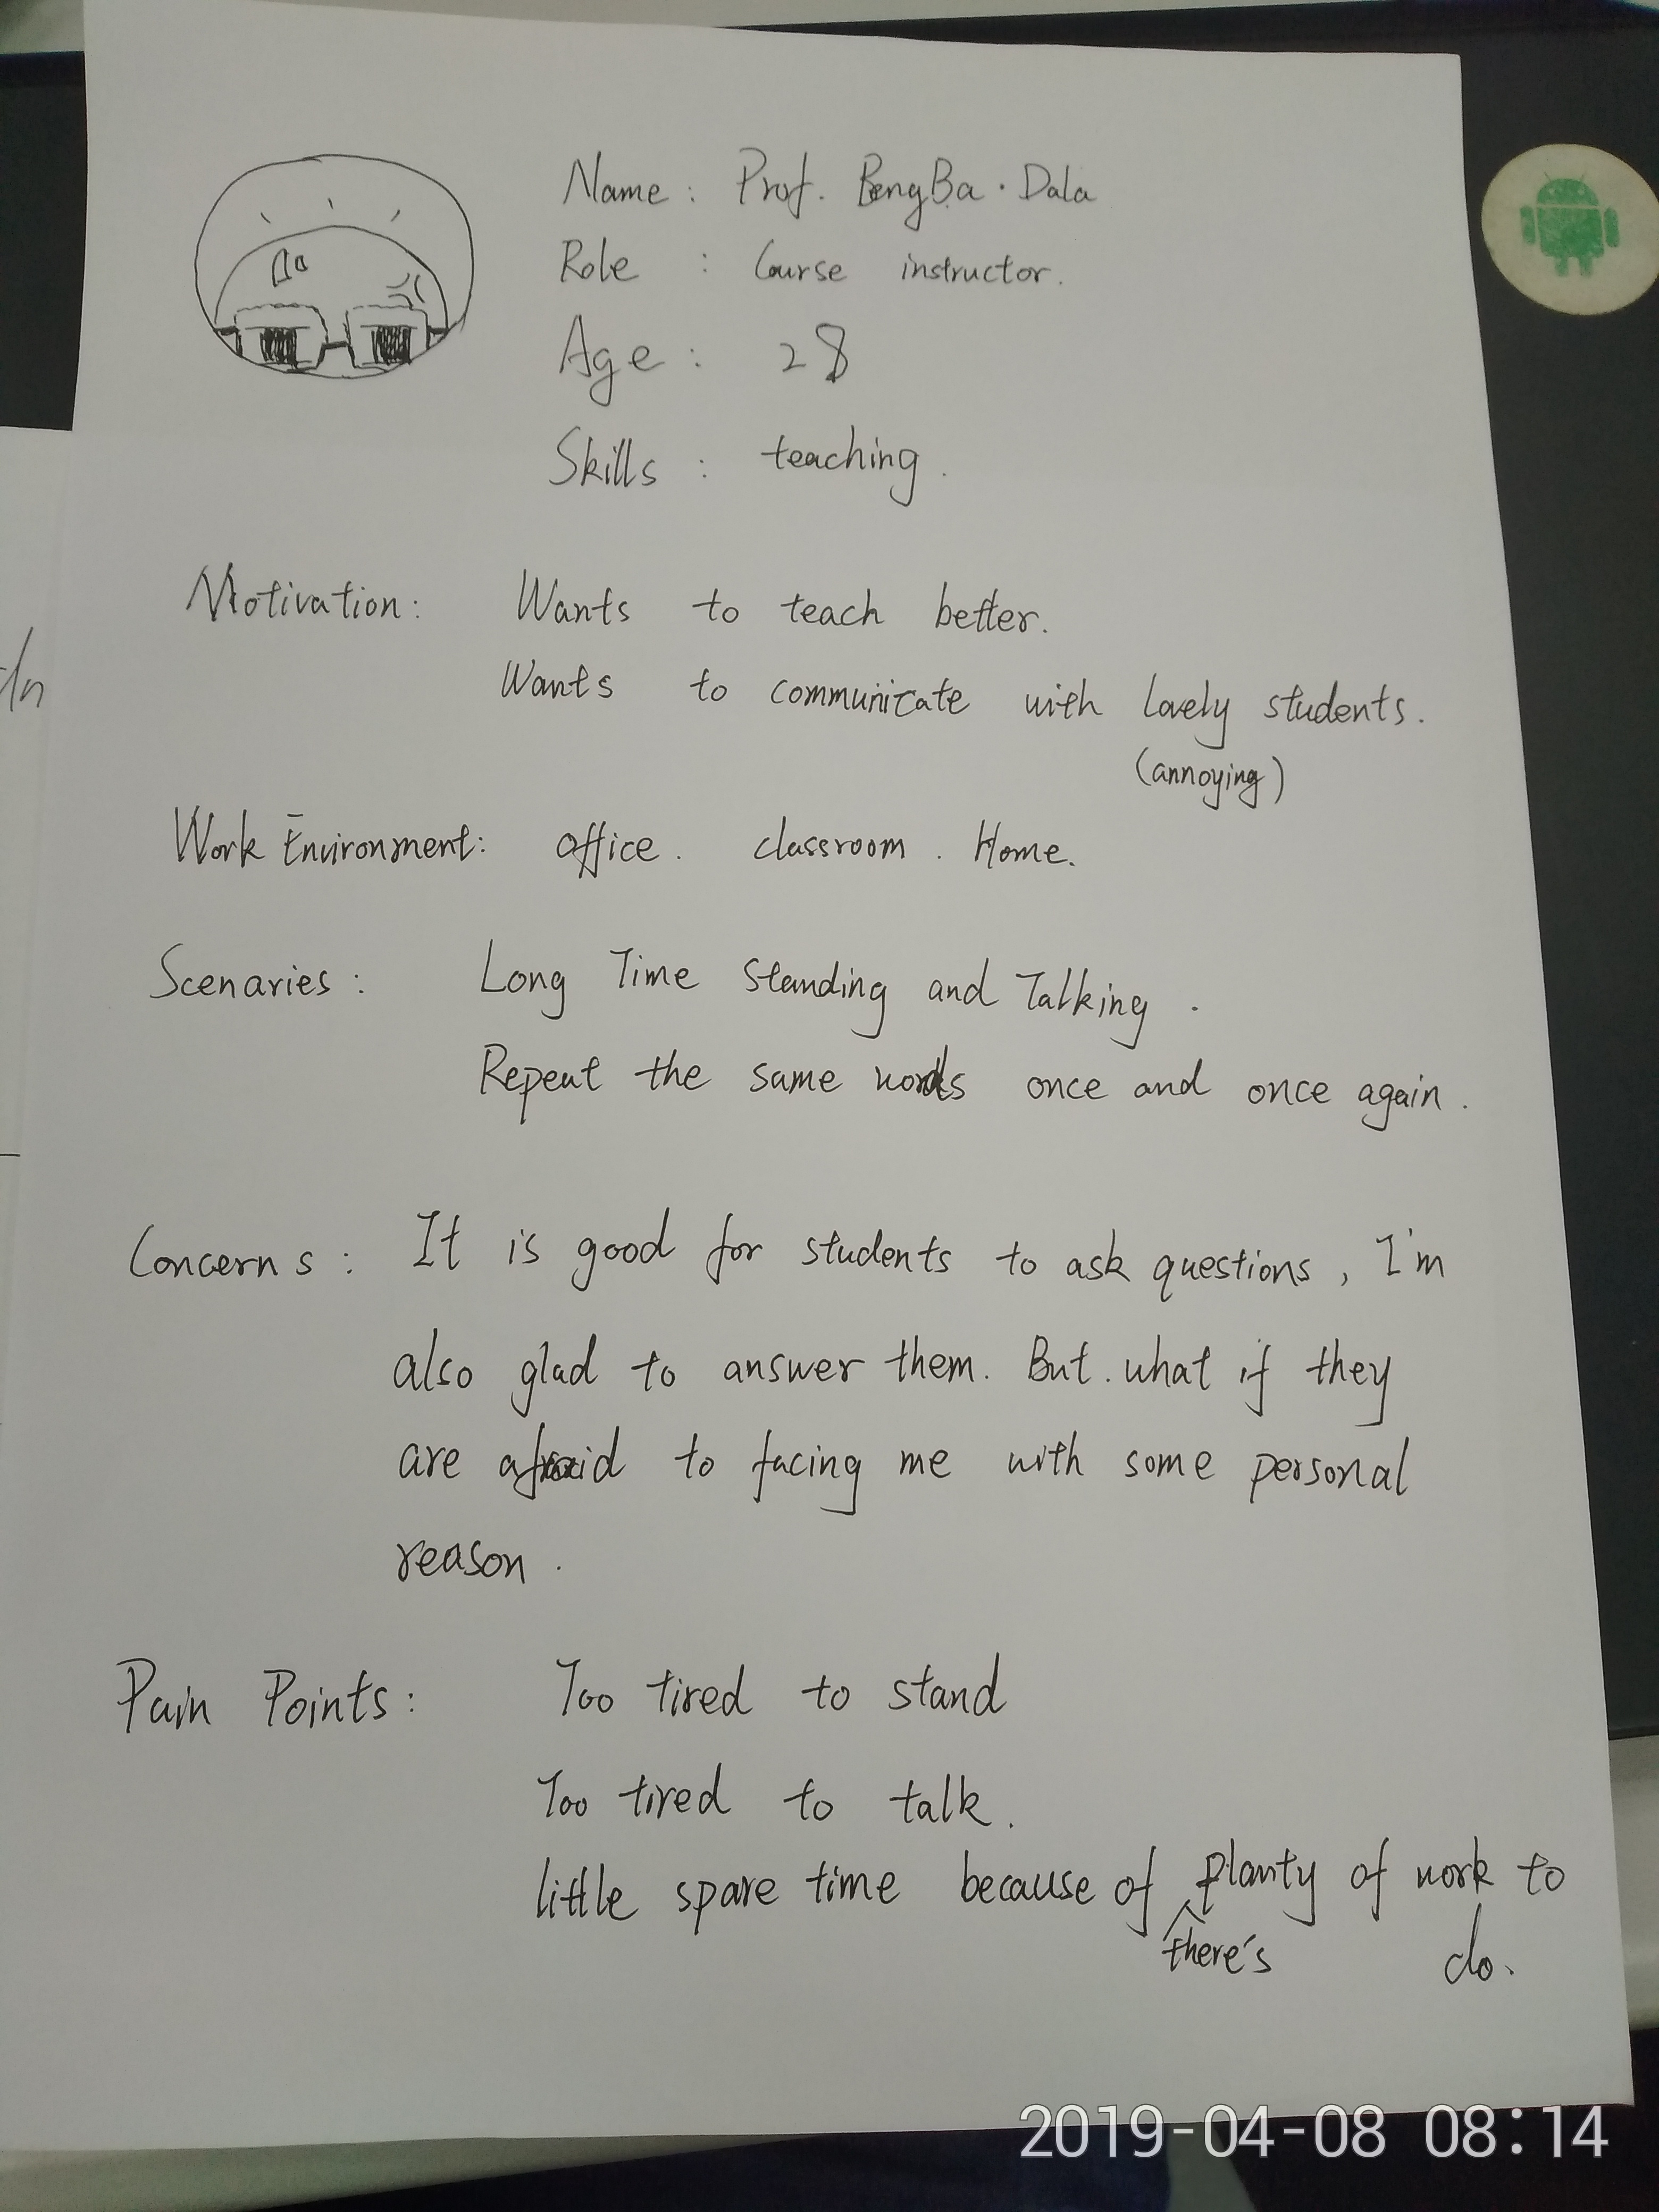 Name : Prof. BengBa · Dala
Role : Course instructor.
Age : 28
Skills : teaching.
Motivation: Wants to teach better.
Wants to communicate with lovely students.
(annoying)
Work Environment: office. classroom. Home.
Scenaries : Long Time Standing and Talking.
Repeat the same words once and once again.
Concerns : It is good for students to ask questions, I'm
also glad to answer them. But. what if they
are afraid to facing me with some personal
reason.
Pain Points: Too tired to stand
Too tired to talk.
little spare time because of planty of work to
there's
do.
2019-04-08 08:14